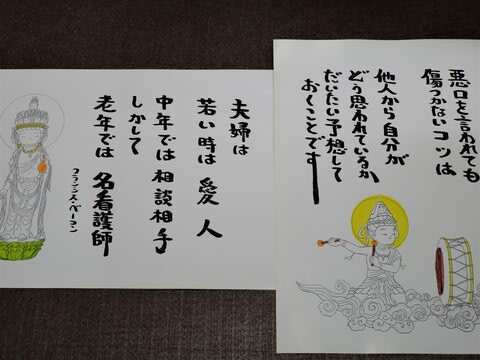 悪口を言われても
傷つかないコツは
他人から自分が
どう思われているか、
だいたい予想して
おくことです
夫婦は
若い時は 愛人
中年では 相談相手
しかして
老年では 名看護師
フランシス・ベーコン